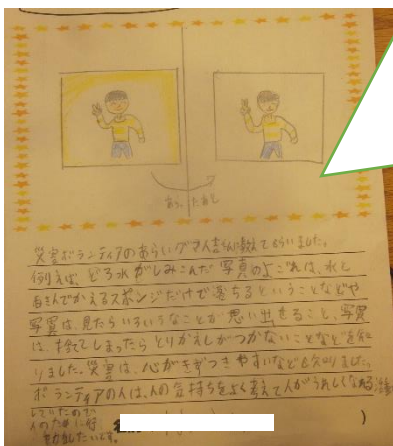 あらったあと
災害ボランティアのあらいグマさんたちに教えてもらいました。
例えば、どろ水がしみこんだ写真のよごれは、水と
台所でつかえるスポンジだけで落ちるということなどや
写真は、見たらいろいろなことが思い出せること、写真
は、捨ててしまったらとりかえしがつかないことなどを知
りました。災害は、心がきずつきやすいなども知りました。
ボランティアの人は、人の気持ちをよく考えて人がうれしくなる活動
していたので
人のために行